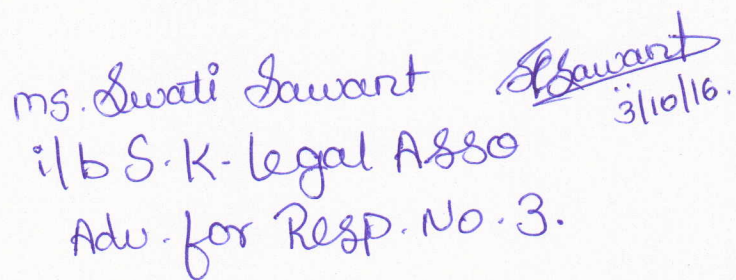 Ms. Swati Sawant SPSawant
3/10/16.
i/b S.K. Legal ASSO
Adv. for Resp. No. 3.